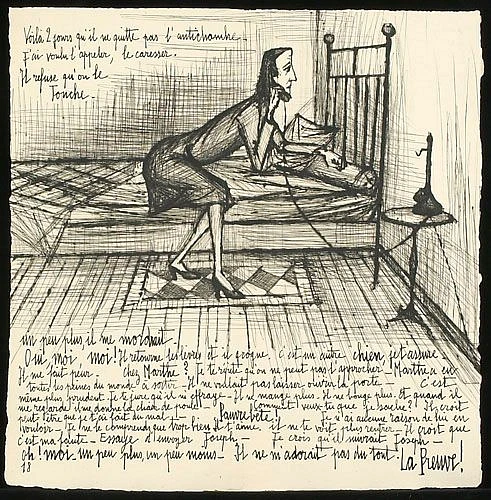 Voilà 2 jours qu'il ne quitte pas l'antichambre_
J'ai voulu l'appeler, le caresser_
Il refuse qu'on le
Touche_
un peu plus, il me mordait_
Oui, moi, moi! Il retourne les lèvres et il grogne. C'est un autre chien, je t'assure
Il me fait peur_ chez Marthe? Je te répète qu'on ne peut pas l'approcher_ Marthe a eu
toutes les peines du monde à sortir_ Il ne voulait pas laisser ouvrir la porte_ C'est
même plus prudent. Je te jure qu'il m'effraye_ Il ne mange plus. Il ne bouge plus. Et quand il
me regarde il me donne la chair de poule! Comment veux-tu que je sache? Il croit
peut-être que je t'ai fait du mal_ Pauvre bête! Je n'ai aucune raison de lui en
vouloir_ Je ne le comprends que trop bien. Il t'aime. il ne te voit plus rentrer_ Il croit que
c'est ma faute_ Essaye d'envoyer Joseph_ Je crois qu'il suivrait Joseph_
oh! moi... un peu plus, un peu moins_ Il ne m'adorait pas du tout! La Preuve!
18